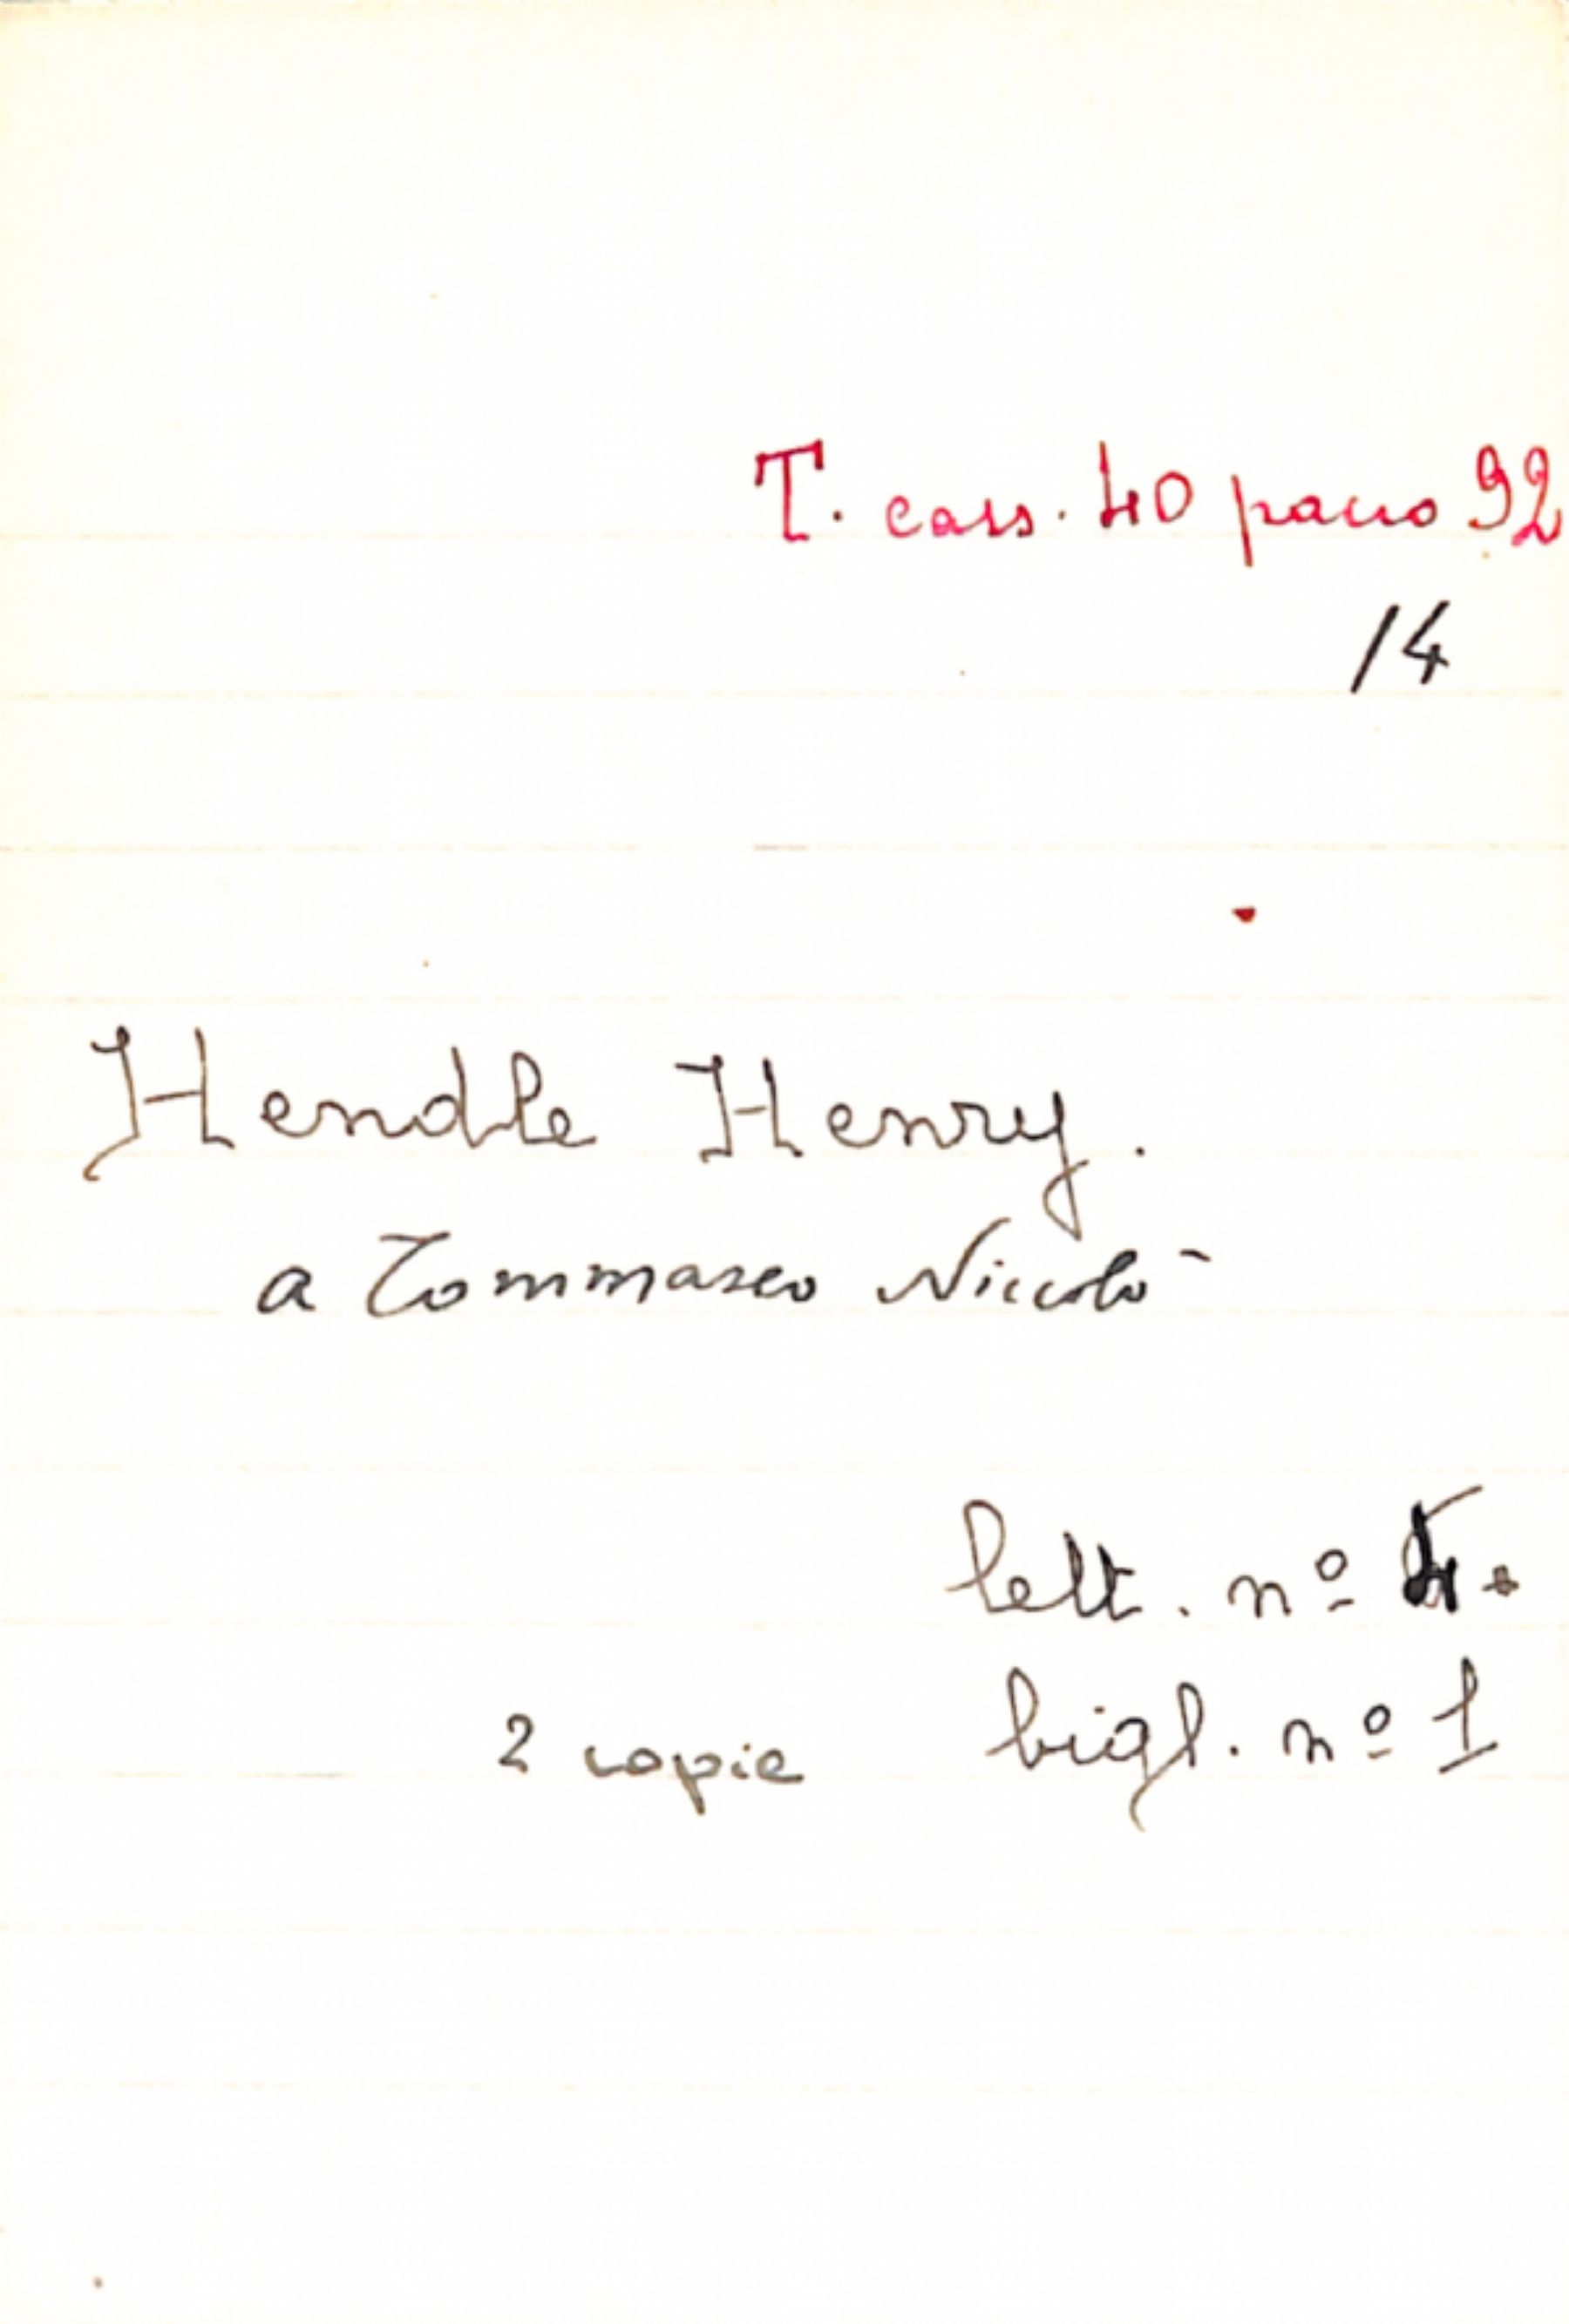 T. cass. 40 pacco 92
/4
Hendle Henry.
a Tommaseo Niccolò
lett. nº 4.
2 copie bigl. nº 1